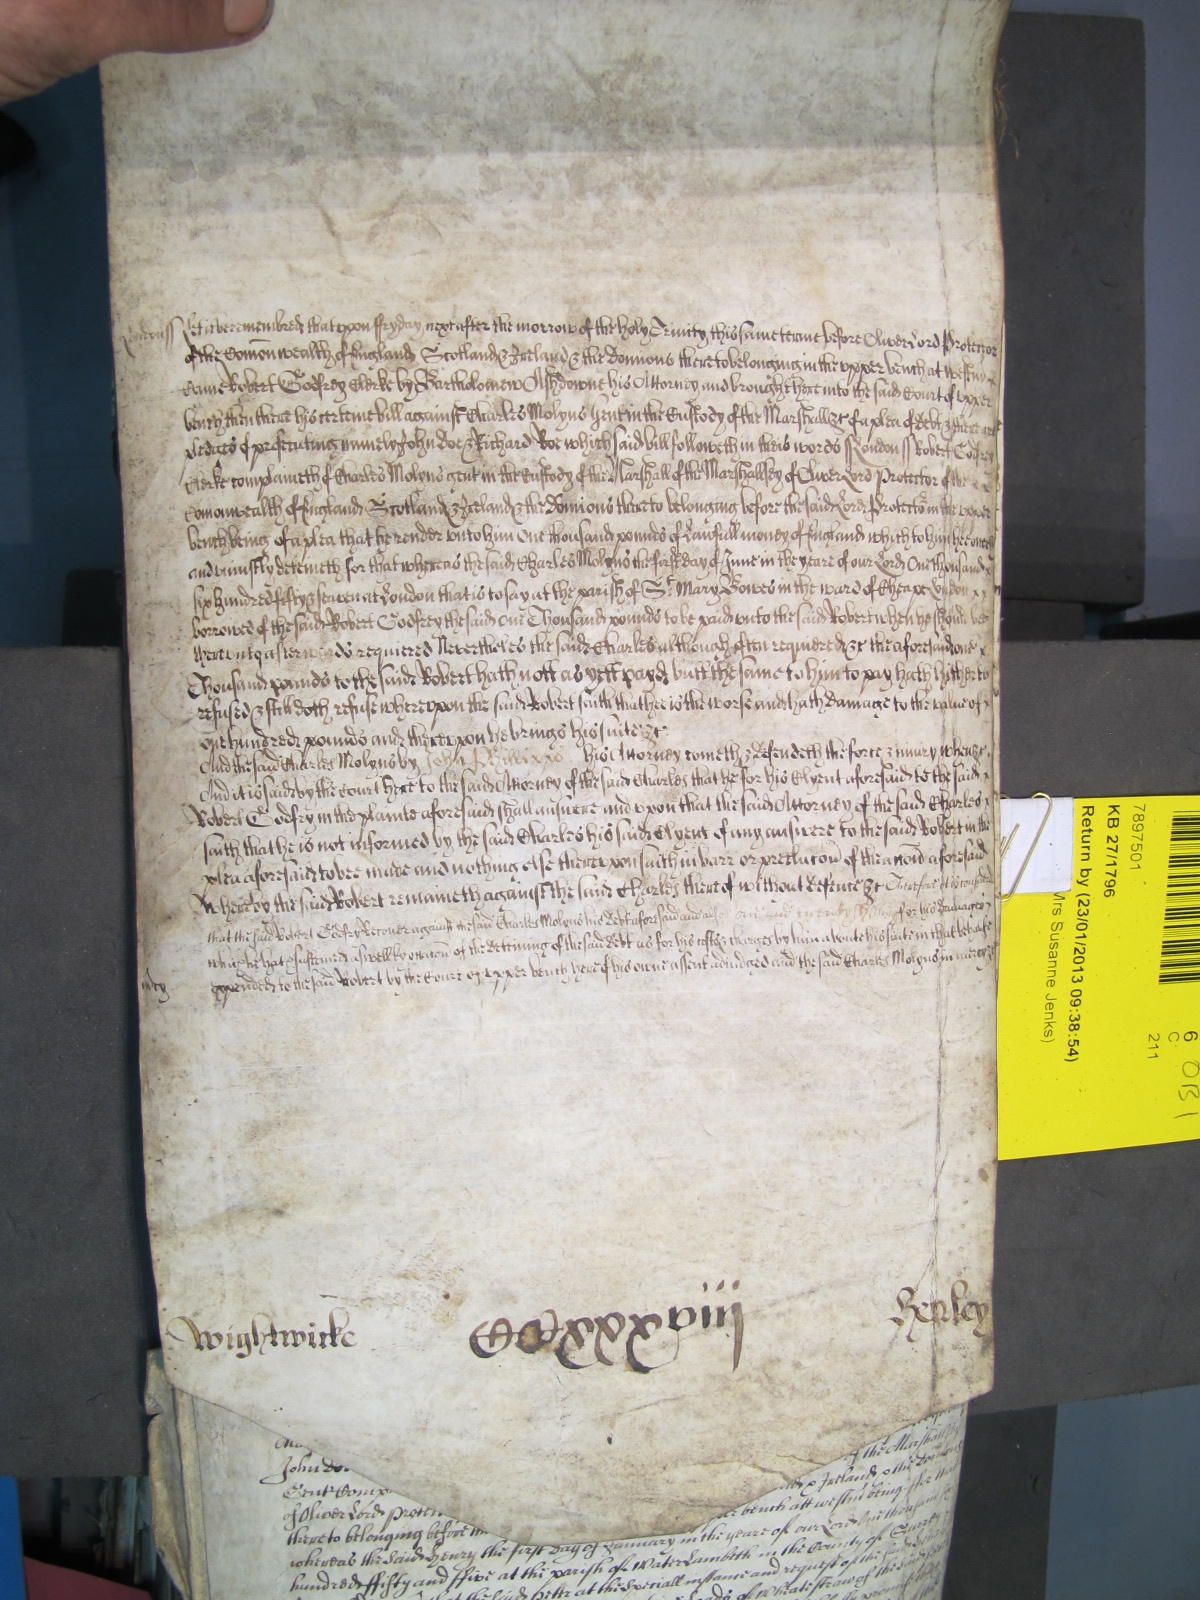 London ss Bee it remembred that upon ffryday next after the morrow of the holy Trinity this same terme before Oliver Lord Protector
of the Comonwealth of England Scotland & Ireland & the Dominions thereto belonging in the upper bench at Westm
came Robert Godfrey Clerke by Bartholomew Ashdowne his Attorney and brought here into the said Court of upper
bench then there his certeine bill against Charles Molyns gent in the Custody of the Marshall &c of a plea of debt & there are
pledges of prosecuting namely John Doe & Richard Roe which said bill followeth in theis words ss London ss Robert Godfrey
Clerke complaineth of Charles Molyns gent in the Custody of the Marshall of the Marshallsey of Oliver Lord Protector of the
Comonwealth of England Scotland & Ireland & the Dominions thereto belonging before the said Lord Protector in the upper
bench being of a plea that he render unto him One thousand pounds of lawfull money of England which to him he oweth
and uniustly deteineth for that whereas the said Charles Molyns the first day of June in the yeare of our Lord One thousand
six hundred fifty & seaven at London that is to say at the parish of St Mary Bowes in the ward of Cheape London
borrowed of the said Robert Godfrey the said One Thousand pounds to be paid unto the said Robert when he should bee
thereunto afterwards required Nevertheles the said Charles although often required &c the aforesaid one
Thousand pounds to the said Robert hath nott as yett payd butt the same to him to pay hath hitherto
refused & still doth refuse whereupon the said Robert saith that hee is the worse and hath damage to the value of
one hundred pounds and thereupon he brings his suite &c
And the said Charles Molyns by John his Attorney cometh & defendeth the force & iniury when &c
And it is said by the Court here to the said Attorney of the said Charles that he for his Clyent aforesaid to the said
Robert Godfry in the plainte aforesaid shall answere and upon that the said Attorney of the said Charles
saith that he is not informed by the said Charles his said Clyent of any answere to the said Robert in the
plea aforesaid to bee made and nothing else thereupon saith in barr or preclucion of the accon aforesaid
Whereby the said Robert remaineth against the said Charles thereof without defence &c Therefore it is considered
that the said Robert Godfry Recover against the said Charles Molyns his Debt aforesaid and also for his damages
which he hath susteined aswell by occacon of the deteining of the said debt as for his costs & charges by him about his suite in that behalfe
expended to the said Robert by the Court of upper bench here of his owne assent adiudged and the said Charles Molyns in mercy &c
mcy
Wightwicke
CCxxxviii
Henley
7897501
KB 27/1796
Return by (23/01/2013 09:38:54)
Mrs Susanne Jenks)
6
C
211
John Doe
of Oliver Lord protect
thereto belonging before
whereas the said Henry the first day of January in the yeare of our Lord One thousand six
hundred ffifty and ffive at the parish of Water Lambeth in the County of Surrey
at the speciall instance and request of the said